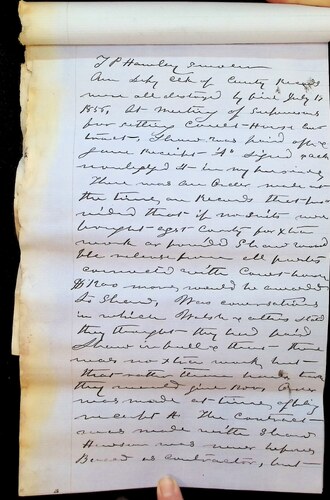 T P Hawley sworn
Am Dpty Clk of County Records
were all destroyed by fire July 12
1858, At meeting of Supervisors
for settling Court-House con
tract, Shaw was paid off &
gave Receipt A. Signed & ack
nowledged it in my presence
There was an Order made at
the time, on Records that pro
vided that if no suits were
brought agst County for extra
work or paid Shaw would
be release from all parties
connected with Court-house
& Rao money would be awarded
to Shaw, Was conversations
in which Walsh & others stated
they thought they had paid
Shaw in full & that there
was no extra work, but
that rather than have trouble
they would give
was made at time of
receipt A The Contract
was made with Shaw
was never before
Board as contractor, but